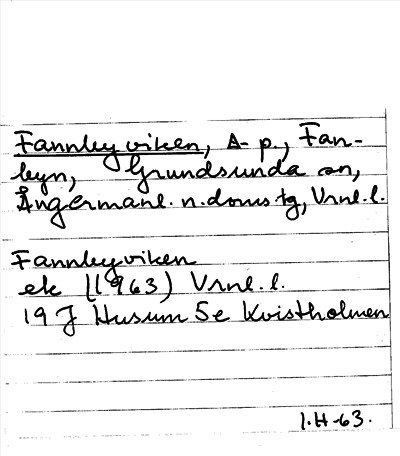 Fannbyviken, A-p., Fan-
byn, Grundsunda sn,
Ångermanl. n. doms.tg, Vrnl.l.
Fannbyviken
ek (1963) Vrnl.l.
19 J Husum 5e Kvistholmen
I.H-63.